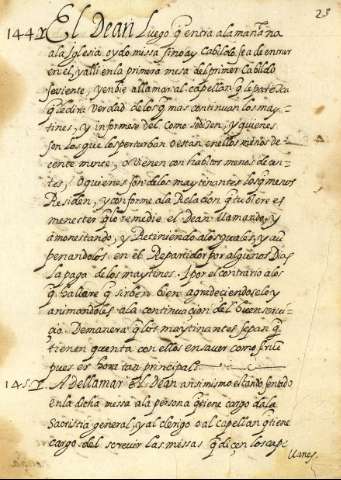 23
144 El Dean Luego q̃ entra a la mañana
a la Iglesia oydo missa sino ay Cabildo, se a de entrar
en el, y alli en la primera mesa del primer Cabildo
se siente, y enbie a llamar al capellan q̃ le pareçe
q̃ le dira verdad de los q̃ mas continuan los may-
tines, y informese del como se diçen, y quienes
son los que los perturban o estan en ellos menos de
cente mente, o vienen con habitos menos decen-
tes, o quienes son de los maytinantes los q̃ menos
Residen, y conforme a la Relaçion q̃ tubiere es
menester q̃ lo remedie el Dean llamando, y
amonestando, y Retiniendo a los quales, y au
penandolos en el Repartidor por algunos Dias
la paga de los maytines. I por el contrario a los
q̃ hallare q̃ sirben bien agradeçiendoselo y
animandoles a la continuaçion del buen servi-
çio. De manera q̃ los maytinantes sepan q̃
tienen quenta con ellos en saver como sirben
pues es hora tan principal.
145 A de llamar El Dean asi mismo estando sentado
en la dicha messa a la persona q̃ tiene cargo de la
Sacristia general, y al clerigo o al capellan q̃ tiene
cargo del screvir las missas q̃ diçen los cape
llanes